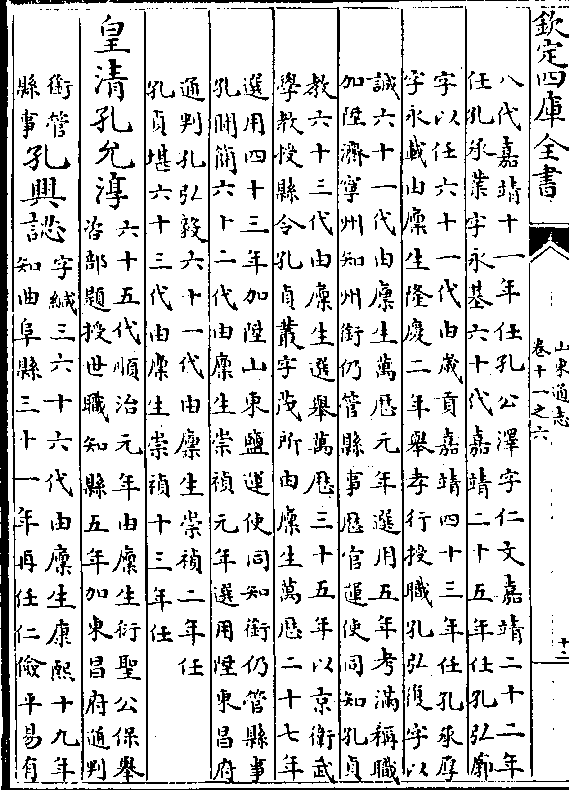 欽定四庫全書
山東通志
卷十一之六
十三
八代嘉靖十一年任孔公澤字仁文嘉靖二十二年
任孔承業字永基六十代嘉靖二十五年任孔弘廓
字以任六十一代由歲貢嘉靖四十三年任孔承厚
字永載由廩生隆慶二年舉孝行授職孔弘復字以
誠六十一代由廩生萬厯元年選用五年考滿稱職
加陞濟寧州知州銜仍管縣事厯官運使同知孔貞
教六十三代由廩生選舉萬厯三十五年以京衛武
學教授縣令孔貞叢字茂所由廩生萬厯二十七年
選用四十三年加陞山東鹽運使同知銜仍管縣事
孔聞簡六十二代由廩生崇禎元年選用陞東昌府
通判孔弘毅六十一代由廩生崇禎二年任
孔貞堪六十三代由廩生崇禎十三年任
皇清孔允淳
六十五代順治元年由廩生衍聖公保舉
咨部題授世職知縣五年加東昌府通判
銜管
縣事
孔興認
字緘三六十六代由廩生康熙十九年
知曲阜縣三十一年再任仁儉平易有